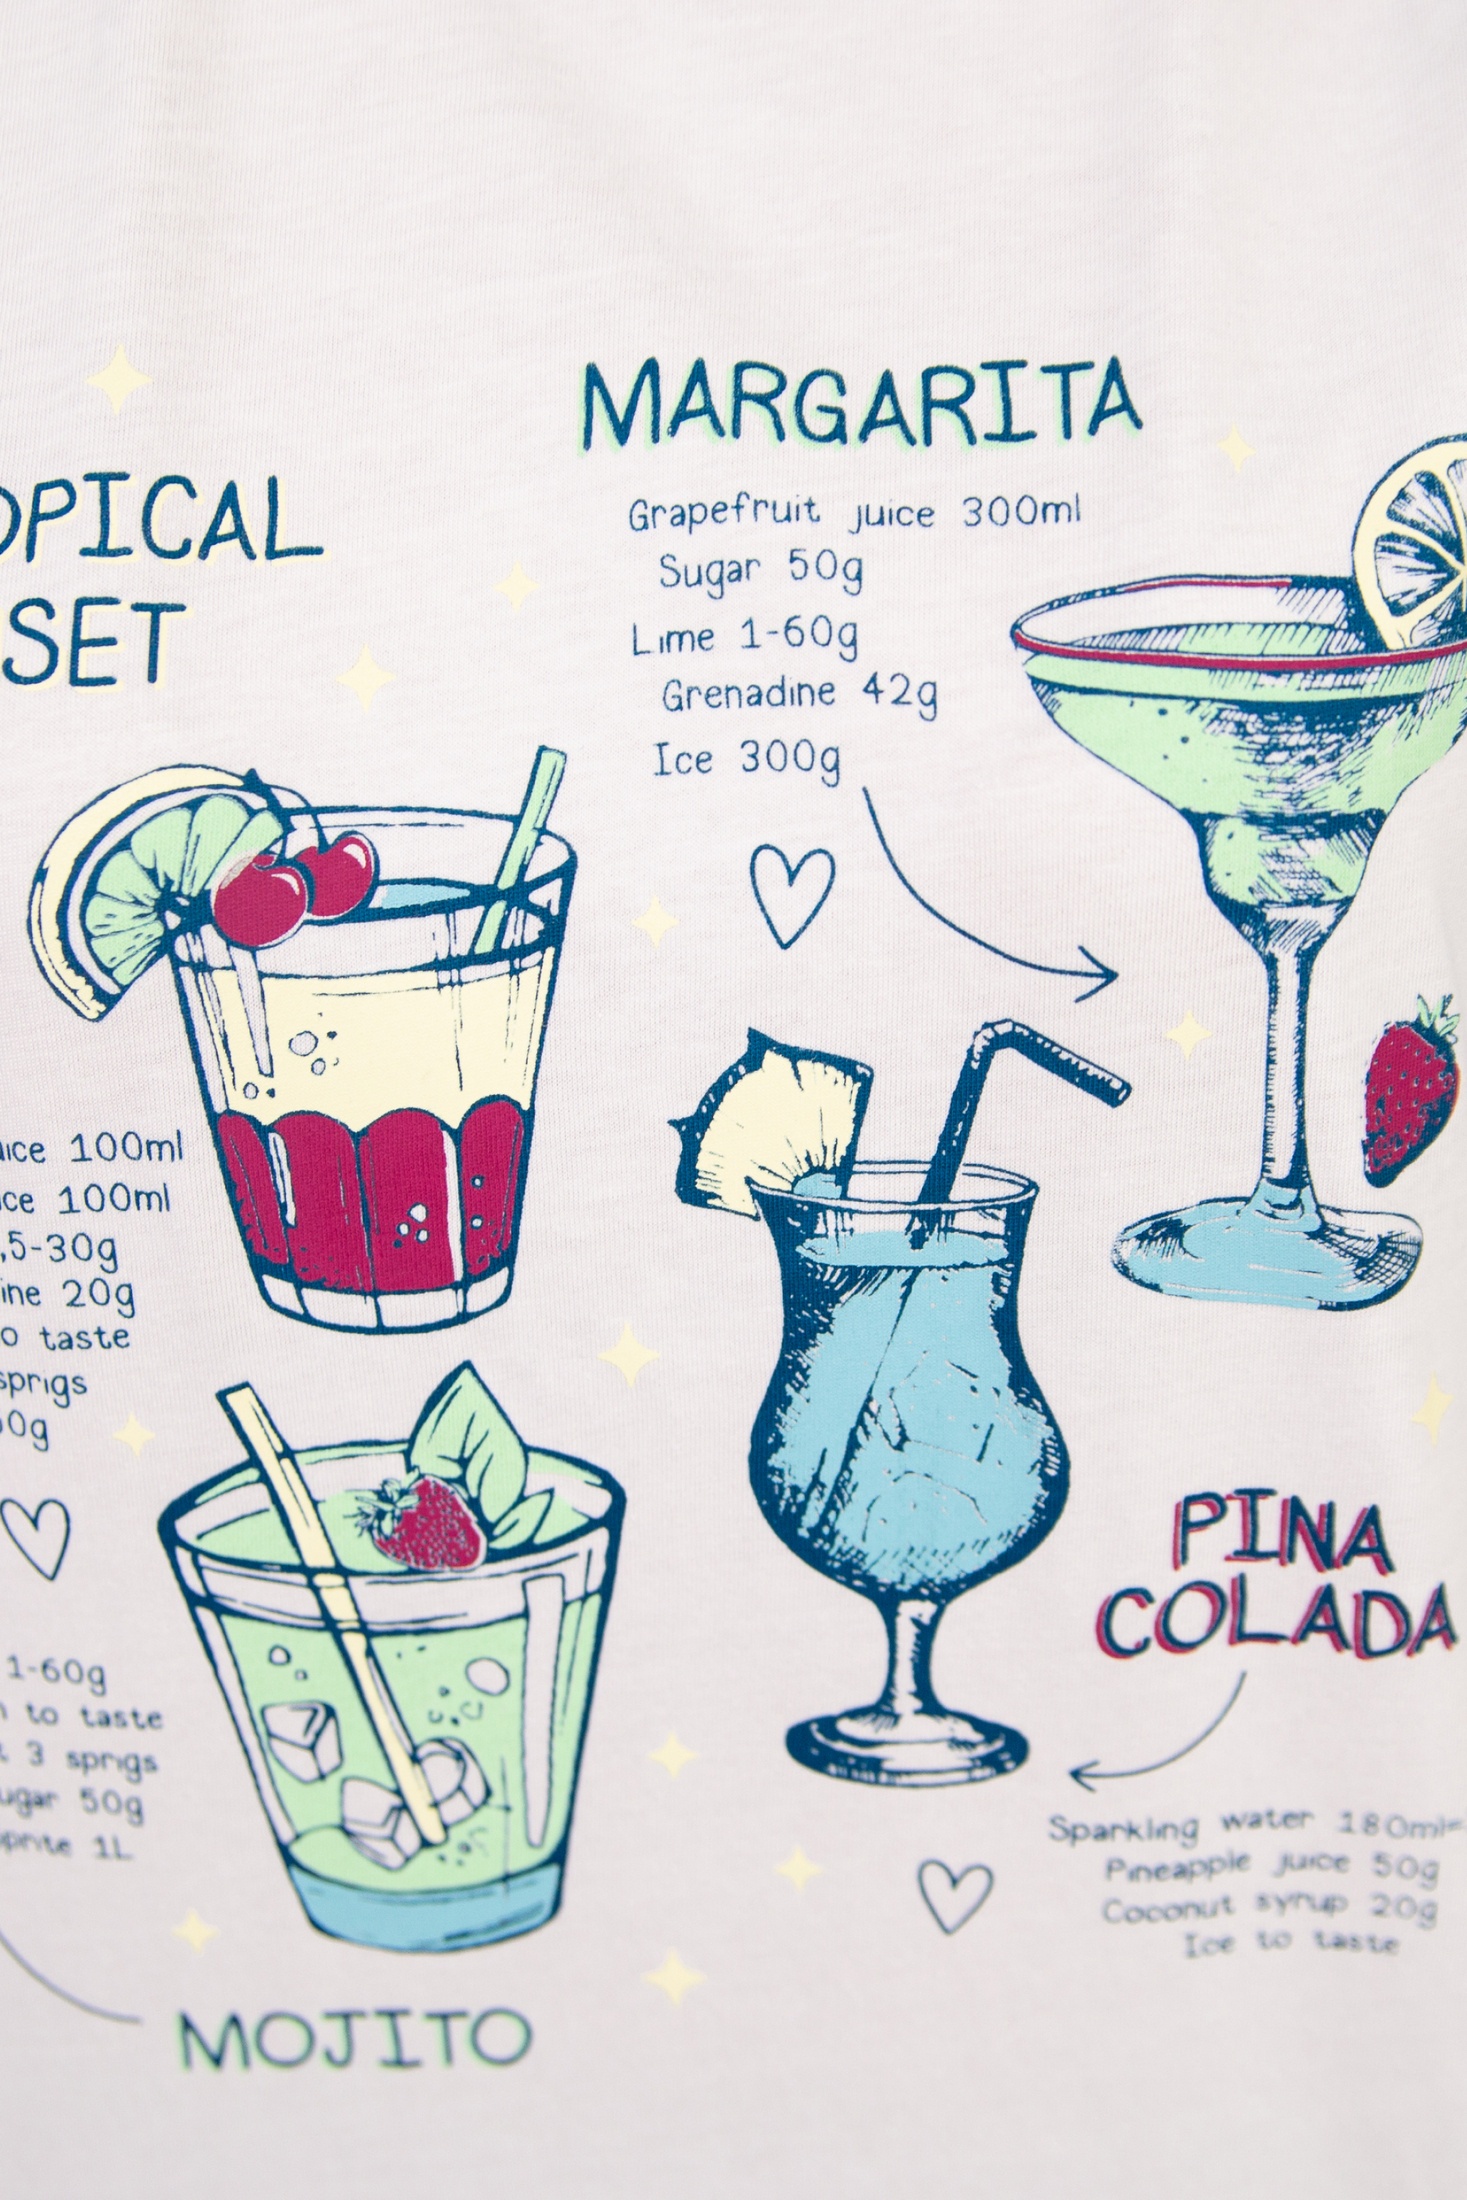 OPICAL
SET
MARGARITA
Grapefruit juice 300ml
Sugar 50g
Lime 1-60g
Grenadine 42g
Ice 300g
uice 100ml
ice 100ml
,5-30g
ine 20g
o taste
sprigs
0g
1-60g
to taste
3 sprigs
ugar 50g
prite 1L
MOJITO
PINA
COLADA
Sparkling water 180ml
Pineapple juice 50g
Coconut syrup 20g
Ice to taste